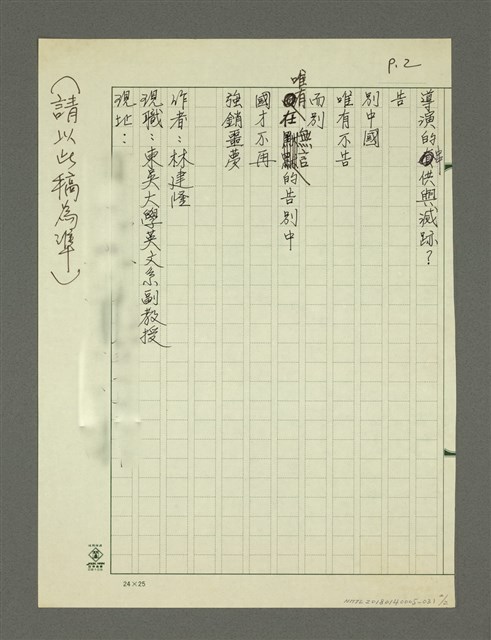 P.2
導演的串供與滅跡？
告
別中國
唯有不告
而別
唯有無言的告別中
國才不再
強銷噩夢
作者：林建隆
現職：東吳大學英文系副教授
現地：
（請以此稿為準）
24×25